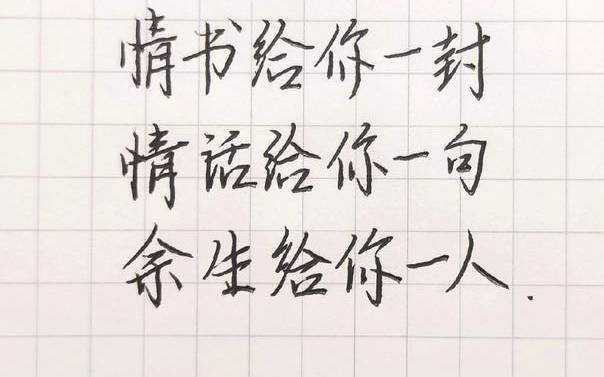 情书给你一封
情话给你一句
余生给你一人.